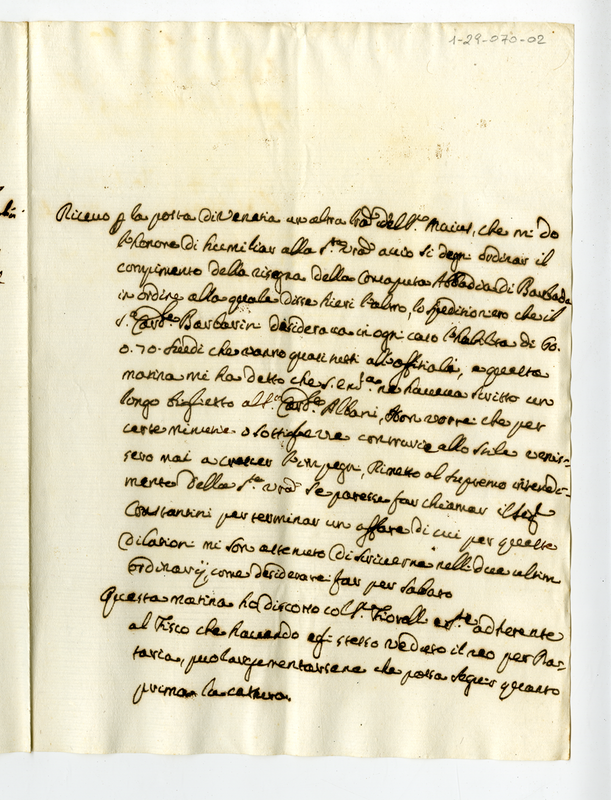 1-29-070-02
Riceuo p la posta di Venetia un altra del Sr. Maius, che mi do
l'honore di humiliar alla Sta. Vra acciò si degni ordinar il
compimento della risegna della Abbadia di
in ordine alla quale disse hieri l'altro, lo speditioniero che il
Sr. Card.le Barbarin desideraua in ogni caso l'habilità di 60.
o. 70. scudi che uanno quasi tutti all'offitiali, e questa
matina mi ha detto che S. Em.za ne haueua scritto un
longo biglietto al Sr. Card.le Albani, Non uorrei che per
certe minutie o contrarie allo Stile uenis=
sero mai a Rimetto al supremo intendi=
mento della Sta. Vra se paresse far chiamar il
Constantini per terminar un affare di cui per queste
dilationi mi son astenuto di scriuerne nelli due ultimi
ordinarij, come desiderarei far per Sabato
Questa matina ho discorso col Sr. aderente
al Fisco che hauendo egli stesso ueduto il reo per
che possa seguir quanto
prima la cattura.